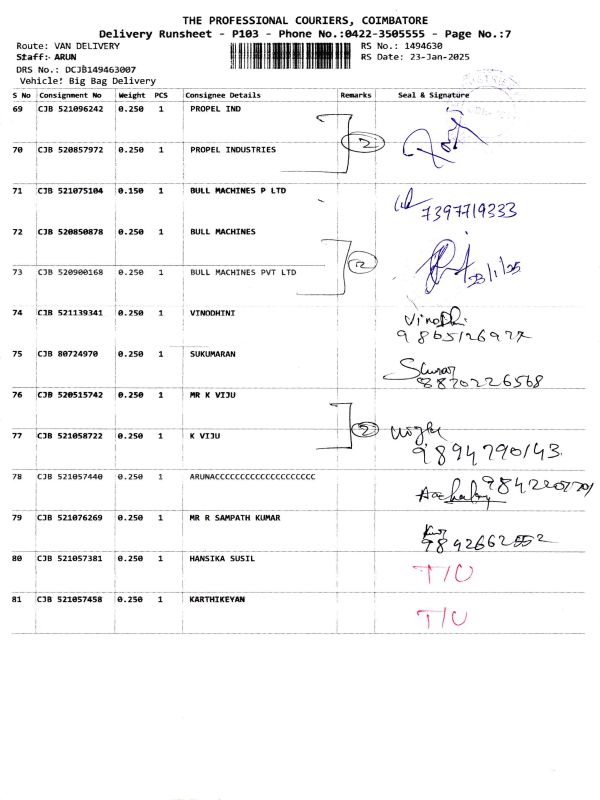 THE PROFESSIONAL COURIERS, COIMBATORE
Delivery Runsheet - P103 - Phone No.:0422-3505555 - Page No.:7
Route: VAN DELIVERY RS No.: 1494630
Staff: ARUN RS Date: 23-Jan-2025
DRS No.: DCJB149463007
Vehicle: Big Bag Delivery
S No Consignment No Weight PCS Consignee Details Remarks Seal & Signature
69 CJB 521096242 0.250 1 PROPEL IND
2
70 CJB 520857972 0.250 1 PROPEL INDUSTRIES
71 CJB 521075104 0.150 1 BULL MACHINES P LTD
7397719333
72 CJB 520850878 0.250 1 BULL MACHINES
2
73 CJB 520900168 0.250 1 BULL MACHINES PVT LTD 23/1/25
74 CJB 521139341 0.250 1 VINODHINI Vinodhi
9865126927
75 CJB 80724970 0.250 1 SUKUMARAN
8870226568
76 CJB 520515742 0.250 1 MR K VIJU
2
77 CJB 521058722 0.250 1 K VIJU 9894790143
78 CJB 521057440 0.250 1 ARUNACCCCCCCCCCCCCCCCCCCC
79 CJB 521076269 0.250 1 MR R SAMPATH KUMAR
9842662552
80 CJB 521057381 0.250 1 HANSIKA SUSIL T/O
81 CJB 521057458 0.250 1 KARTHIKEYAN T/O